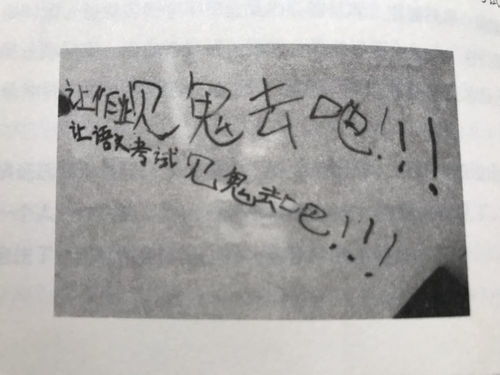 让作业见鬼去吧!!!
让语文考试见鬼去吧!!!